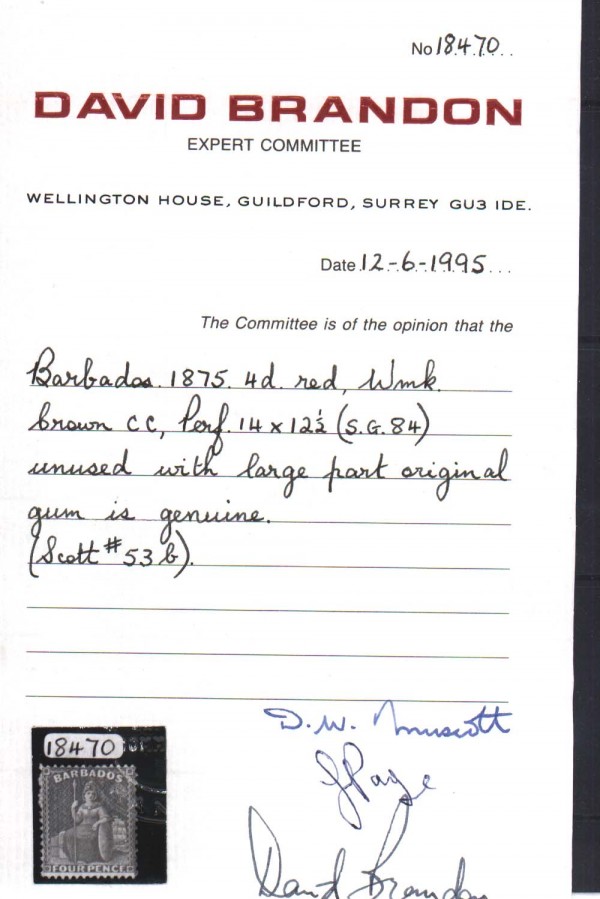 No 18470
DAVID BRANDON
EXPERT COMMITTEE
WELLINGTON HOUSE, GUILDFORD, SURREY GU3 IDE.
Date 12-6-1995
The Committee is of the opinion that the
Barbados. 1875. 4d. red, Wmk.
brown CC, Perf. 14 x 12½ (S.G. 84)
unused with large part original
gum is genuine.
(Scott # 53 b).
D.W. Muscott
J Page
David Brandon
18470
BARBADOS
FOUR PENCE